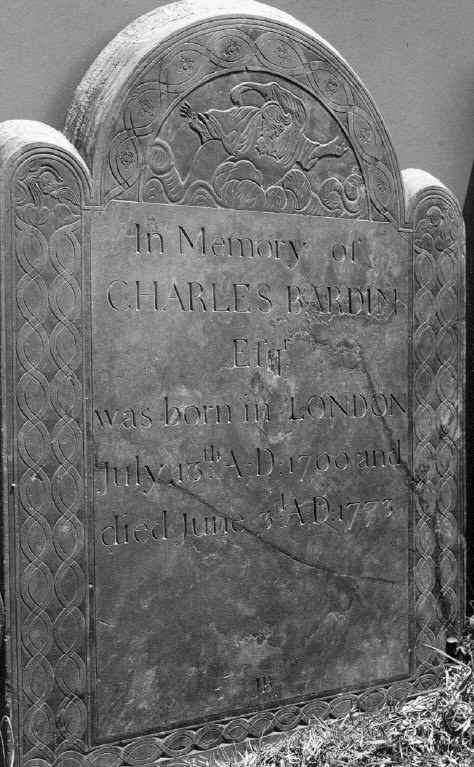 In Memory of
CHARLES BARDIN
Eſqʳ.
was born in LONDON
July 13ᵗʰ A:D:1700 and
died June 3ᵈ A.D.1773
IB